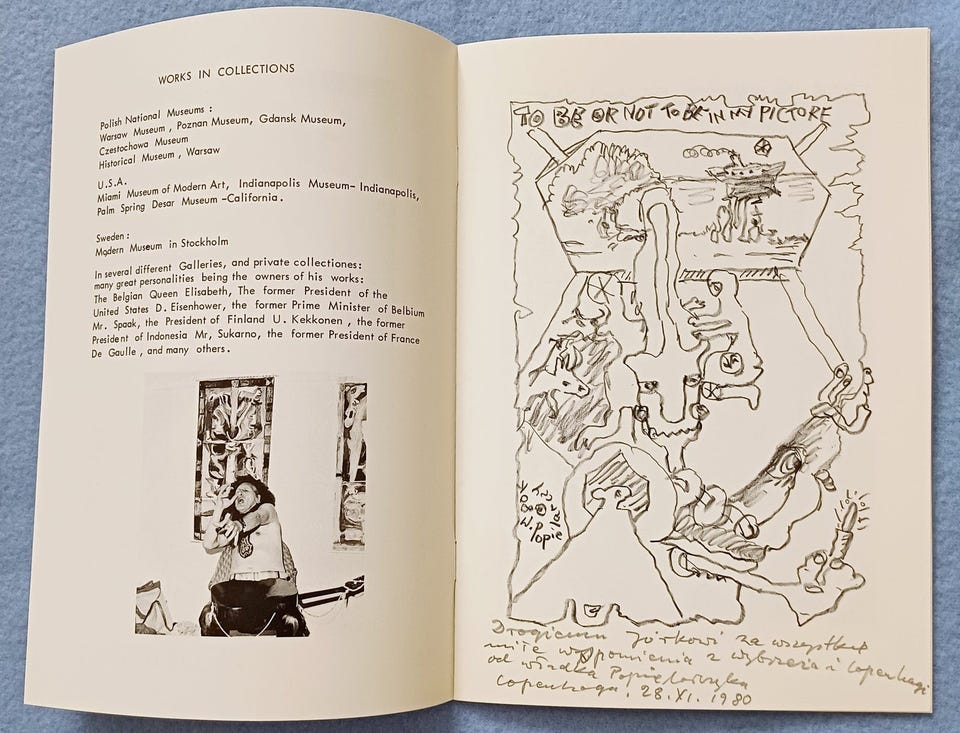 WORKS IN COLLECTIONS
Polish National Museums :
Warsaw Museum , Poznan Museum, Gdansk Museum,
Czestochowa Museum
Historical Museum , Warsaw
U.S.A.
Miami Museum of Modern Art, Indianapolis Museum– Indianapolis,
Palm Spring Desar Museum –California .
Sweden :
Modern Museum in Stockholm
In several different Galleries, and private collectiones:
many great personalities being the owners of his works:
The Belgian Queen Elisabeth, The former President of the
United States D. Eisenhower, the former Prime Minister of Belbium
Mr. Spaak, the President of Finland U. Kekkonen , the former
President of Indonesia Mr, Sukarno, the former President of France
De Gaulle , and many others .
TO BE OR NOT TO BE IN MY PICTURE
W. Popielar
Drogiemu Jórkowi za wszystkie
miłe wspomnienia z wybrzeża i Copenhagi
od Władka Popielarczyka
Copenhaga . 28. XI. 1980